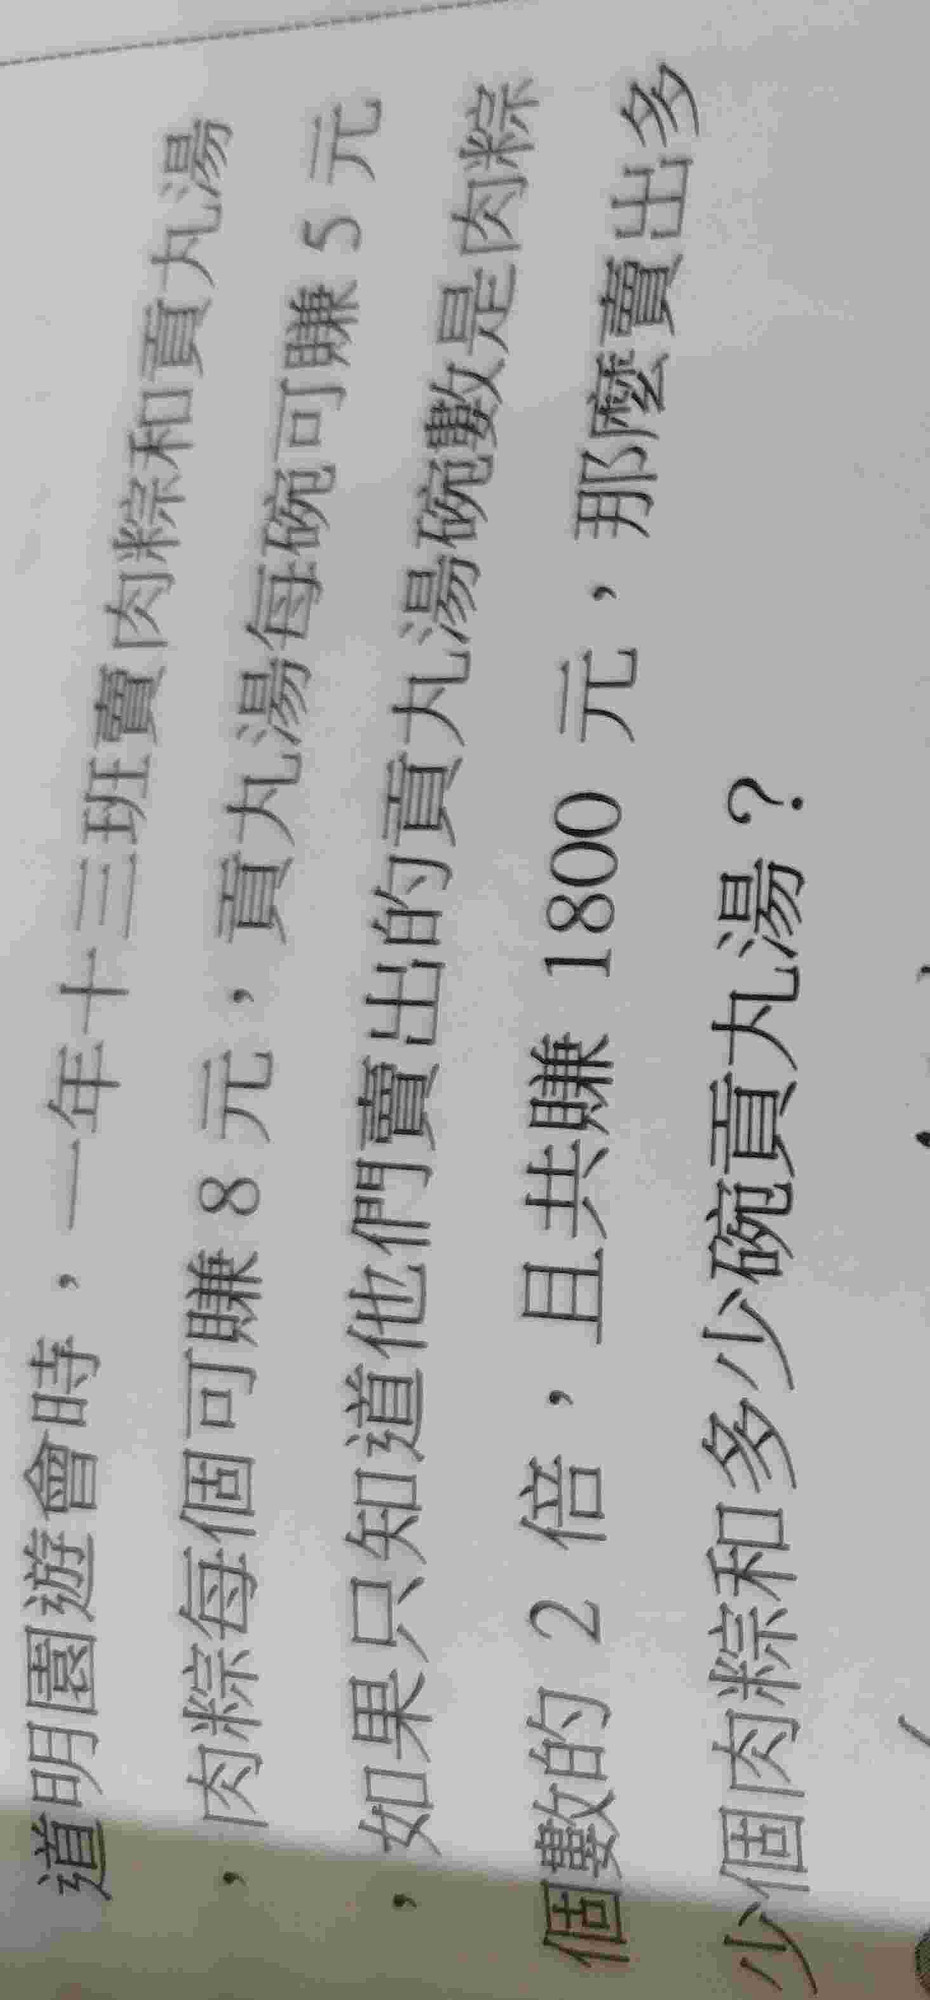 道明園遊會時，一年十三班賣肉粽和貢丸湯
，肉粽每個可賺 8 元，貢丸湯每碗可賺 5 元
，如果只知道他們賣出的貢丸湯碗數是肉粽
個數的 2 倍，且共賺 1800 元，那麼賣出多
少個肉粽和多少碗貢丸湯？